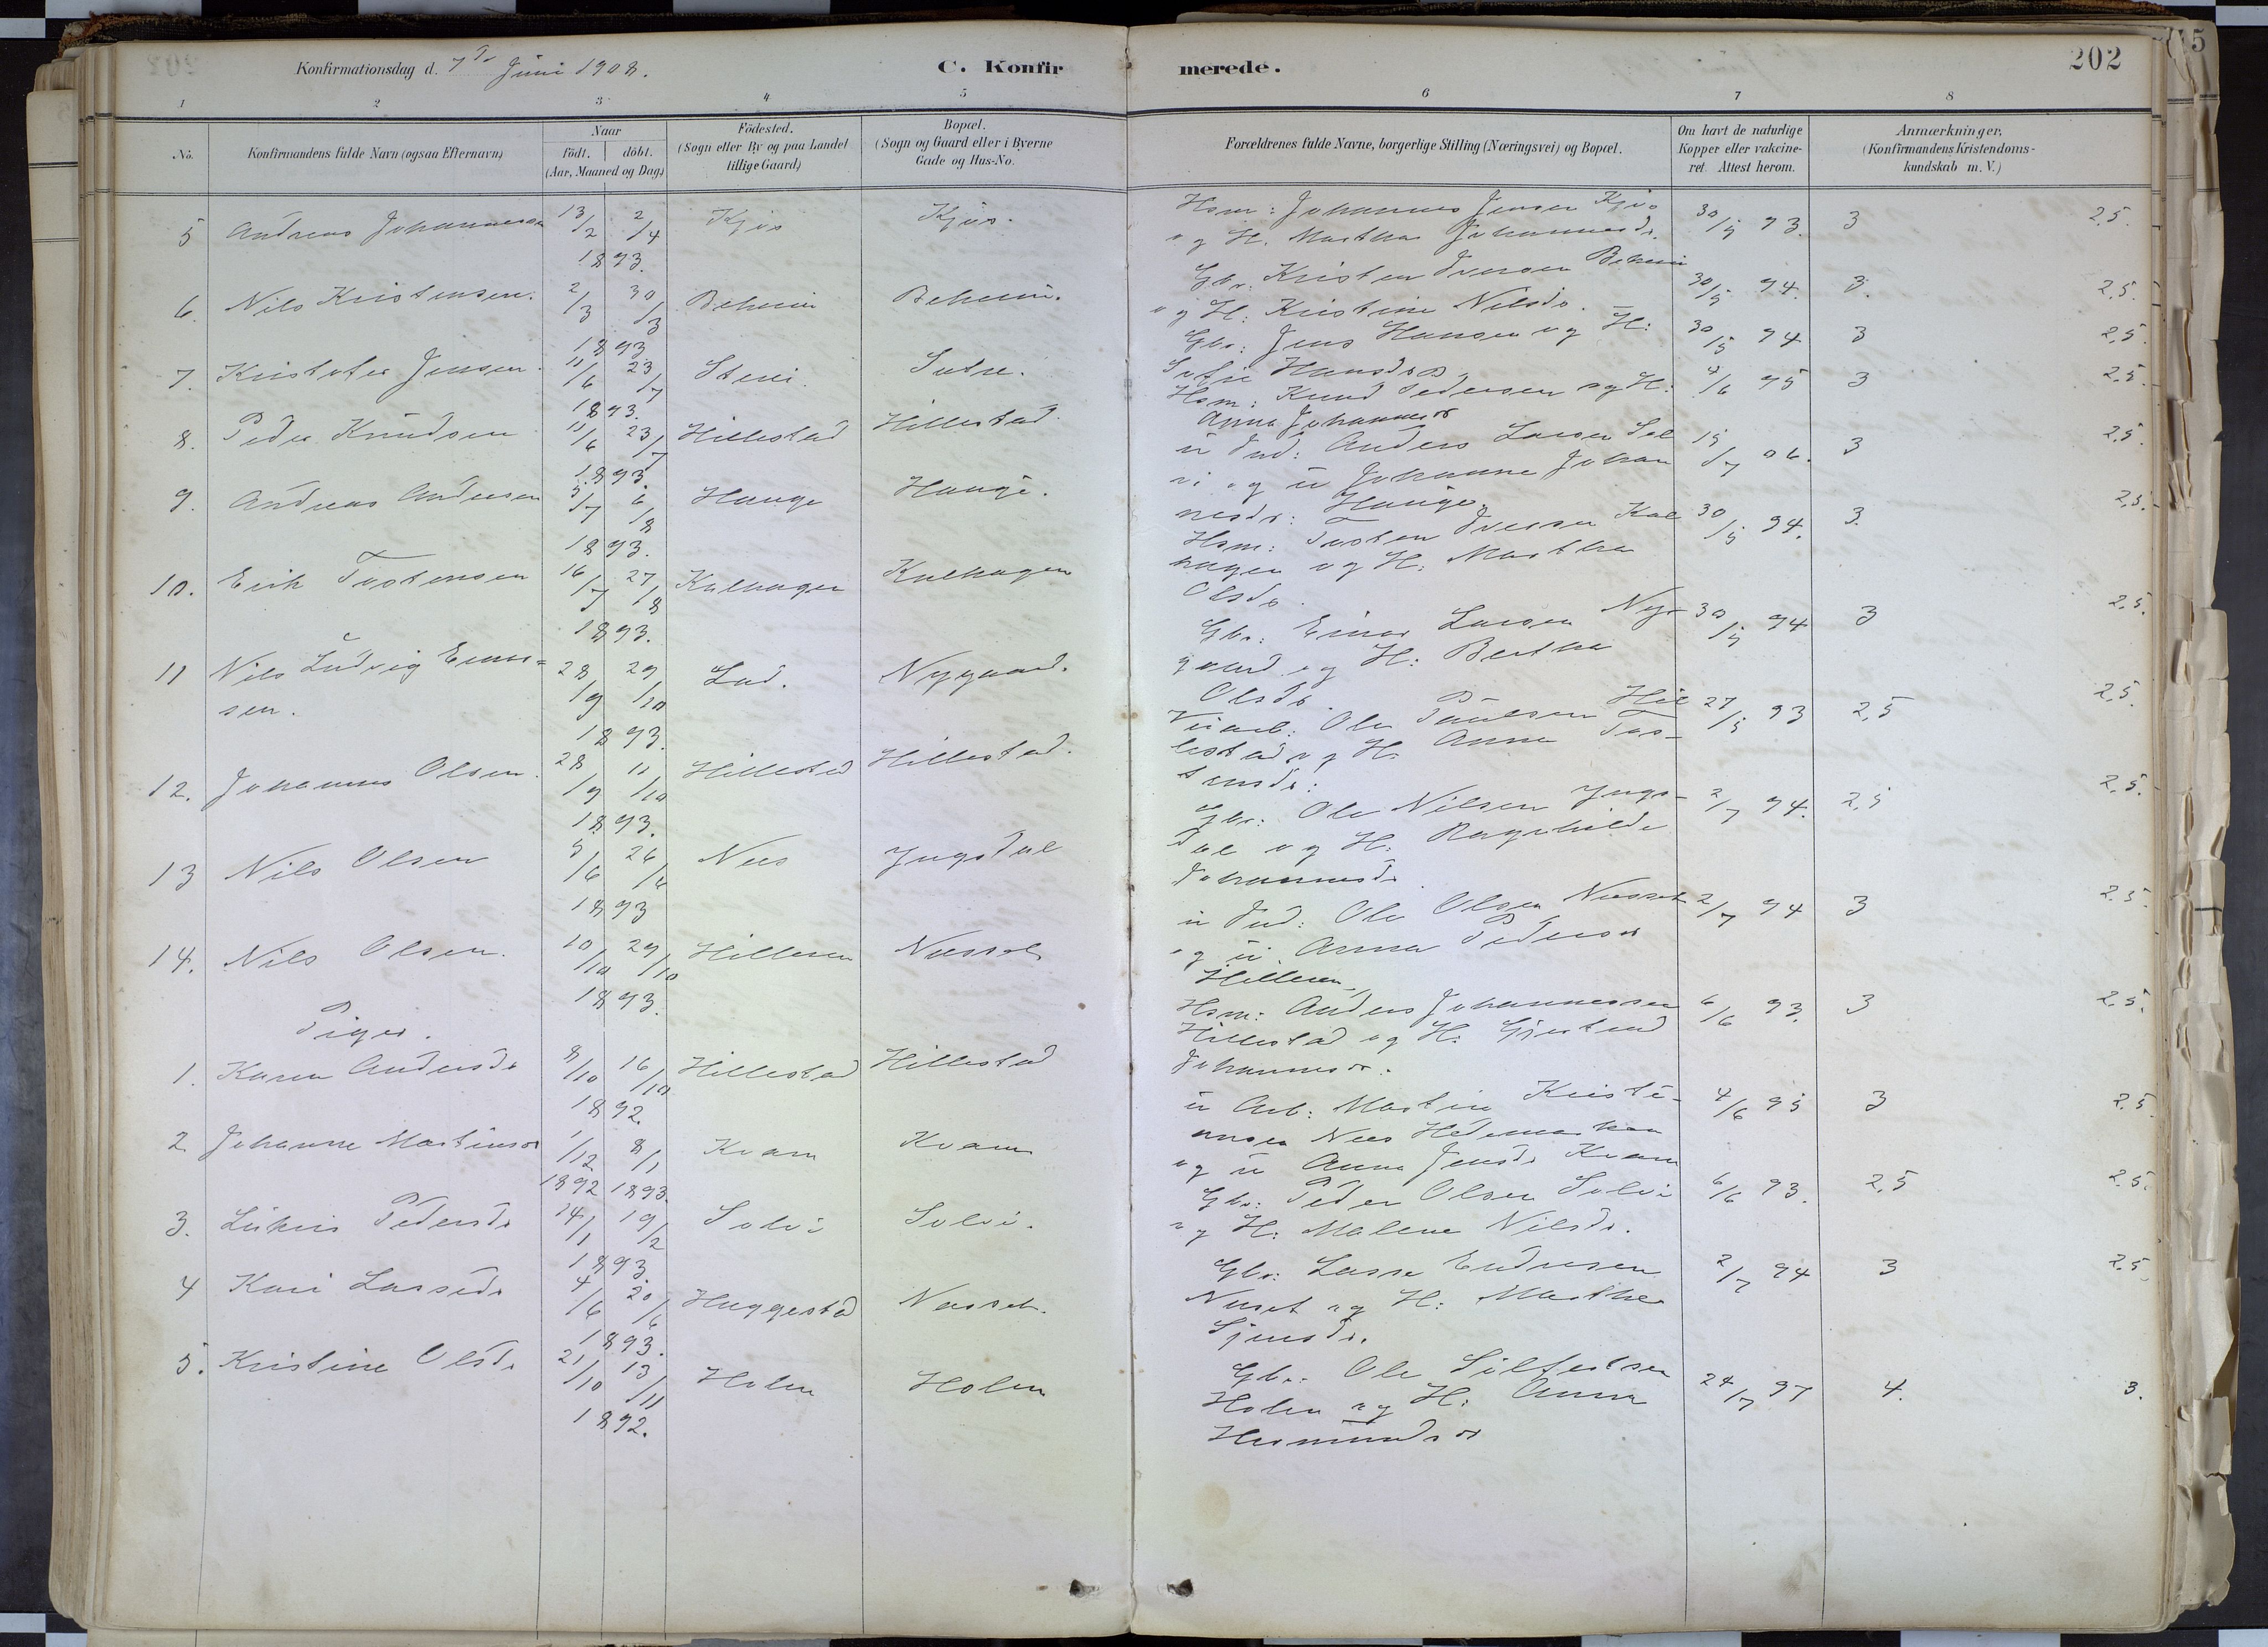 Konfirmationsdag d. 7de Juni 1908.
C. Konfirmerede.
202
1 2 3 4 5 6 7 8
No.
Konfirmandens fulde Navn (ogsaa Efternavn)
Naar
Födt. döbt.
(Aar, Maaned og Dag)
Födested.
(Sogn eller By og paa Landet
tillige Gaard)
Bopæl.
(Sogn og Gaard eller i Byerne
Gade og Hus-No.
Forældrenes fulde Navne, borgerlige Stilling (Næringsvei) og Bopæl.
Om havt de naturlige
Kopper eller vakcine-
ret. Attest herom.
Anmærkninger,
(Konfirmandens Kristendoms-
kundskab m. V.)
5 Andreas Johannessen 13/2 2/4 1893. Kjøs Kjøs.
Hsm: Johannes Jensen Kjøs
og H. Martha Johannesdr. 30/5 93. 3 2.5.
6. Nils Kristensen. 2/3 30/3 1893 Beheim Beheim.
Gbr. Kristen Iversen Beheim
og H: Kristine Nilsdr. 30/5 94. 3. 2.5.
7. Kristofer Jensen. 11/6 23/7 1893. Steni. Sutne.
Gbr: Jens Hansen og H:
Sofie Hansdr 30/5 94 3 2.5.
8. Peder Knudsen 11/6 23/7 1893. Hillestad Hillestad.
Hsm: Knud Pedersen og H:
Anna Johannesdr 4/6 95 3 2.5.
9. Andreas Andersen 5/7 6/8 1893. Hauge Hauge.
u Ind: Anders Larsen Sol
vi og u Johanne Johan
nesdr: Hauge, 15/7 06. 3 2.5.
10. Erik Tostensen 16/7 27/8 1893. Kalhagen Kalhagen
Hsm: Tosten Iversen Kal
hagen og H: Martha
Olsdr. 30/5 94. 3. 2.5.
11 Nils Ludvig Einar=
sen. 28/9 29/10 1893. Lad. Nygaard.
Gbr: Einar Larsen Ny-
gaard og H: Bertha
Olsdr. 30/5 94 3 2.5.
12. Johannes Olsen. 28/9 11/10 1893. Hillestad Hillestad.
Veiarb: Ole Paulsen Hil
lestad og H. Anna Tos-
tensdr: 27/5 93 2,5 2.5.
13 Nils Olsen 5/6 26/6 1893 Nees Yngsdal
Gbr: Ole Nilsen Yngs-
dal og H: Ragnhilde
Johannesdr. 2/7 94. 2.5 2.5.
14. Nils Olsen. 10/10 29/10 1893. Hilleren Nesset
u Ind: Ole Olsen Nesset
og u. Anna Pedersdr
Hilleren, 2/7 94 3 2.5.
Piger.
1. Karen Andersdr 8/10 16/10 1892. Hillestad Hillestad
Hsm: Anders Johannessen
Hillestad og H: Gjertrud
Johannesdr. 6/6 93. 3 2.5.
2 Johanne Martinsdr 1/12 1892 8/1 1893. Kvam Kvam
u Arb: Martin Kristi-
ansen Nees Hedemarken
og u Anna Jensdr Kvam 4/6 95 3 2.5.
3. Lukris Pedersdr 14/1 19/2 1893 Solvi Solvi.
Gbr: Peder Olsen Solvi
og H: Malene Nilsdr. 6/6 93. 2,5 2.5.
4 Kari Lassedr 4/6 20/6 1893. Huggestad Nesset.
Gbr: Lasse Endresen
Neset og H: Marthe
Sjursdr. 2/7 94 3 2.5.
5. Kristine Olsdr 21/10 13/11 1892. Holen Holen
Gbr. Ole Silfestsen
Holen og H: Anna
Hermundsdr 24/7 97 4. 3.